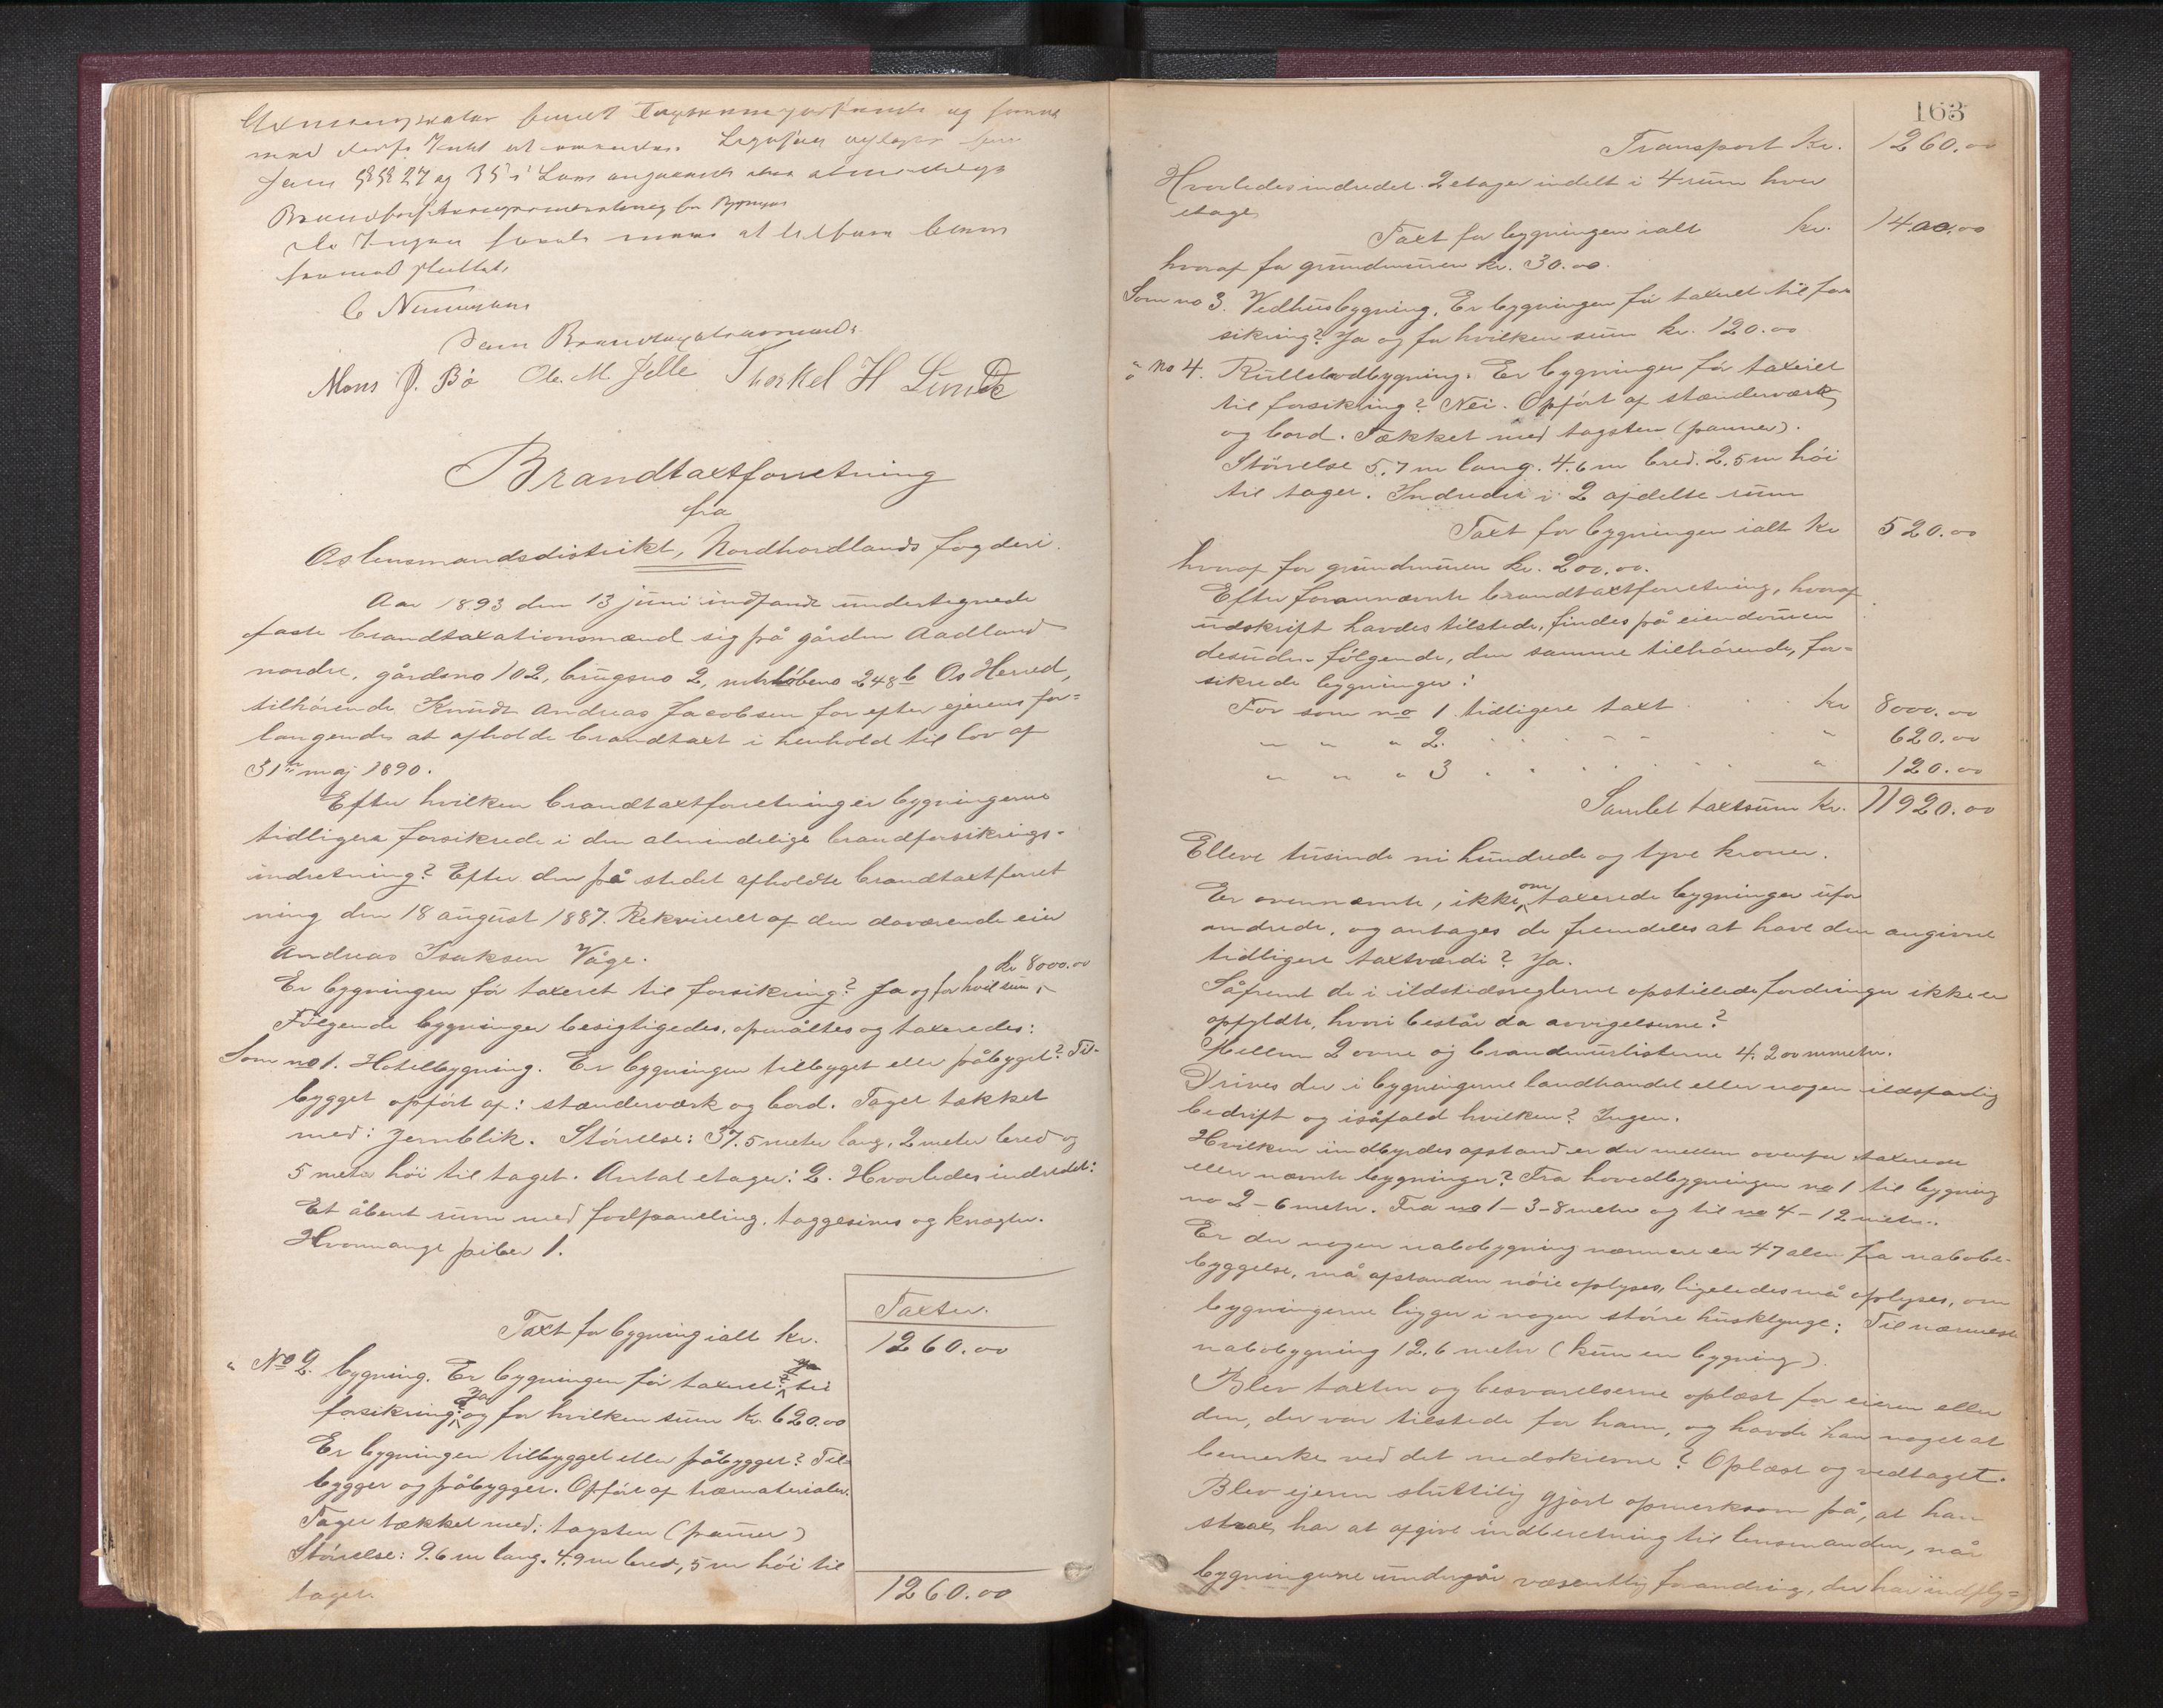 og
med at
Jevn §§§ 27 og 35 i Lov angaaende den almindelige
for Bygninger
at
sluttet.
C
som
Mons J. Bö Ole. M. Jelle Thorkel H Lunde
Brandtaxtforretning
fra
Os lensmandsdistrikt, Nordhordlands fogderi.
Aar 1893 den 13 juni indfandt undertegnede
faste brandtaxationsmænd sig på gården Aadland
nordre, gårdsno 102, brugsno 2, mtrløbeno 248b Os Herred,
tilhørende Knudt Andreas Jacobsen for efter ejerens for-
langende at afholde brandtaxt i henhold til lov af
31te maj 1890.
Efter hvilken brandtaxtforretning er bygningerne
tidligere forsikrede i den almindelige brandforsikrings-
indretning? Efter den på stedet afholdte brandtaxtforret
ning den 18 august 1887. Rekvireret af den daværende eier
Andreas Isaksen Våge.
kr 8000.00
Er bygningen før taxeret til forsikring? Ja og for hvil sum,
Følgende bygninger besigtigedes, opmåltes og taxeredes:
Som no 1. Hotelbygning. Er bygningen tilbygget eller påbygget? Til-
bygget opført af: stænderværk og bord. Taget tækket
med: Jernblik. Størrelse: 37.5 meter lang, 2 meter bred og
5 meter høi til taget. Antal etager: 2. Hvorledes indredet:
Et åbent rum med fodpaneling, taggesims og knægter.
Hvormange piber 1.
Taxter.
Taxt for bygning ialt kr. 1260.00
" No 2. bygning. Er bygningen før taxeret? til
forsikring? Ja og for hvilken sum kr 620.00
Er bygningen tilbygget eller påbygget? Til-
bygget og påbygget. Opført af træmaterialer.
Taget tækket med: tagsten (panner)
Størrelse: 9.6 m lang. 4.9 m bred, 5 m høi til
taget. 1260.00
163
Transport kr. 1260.00
Hvorledes indredet. 2 etager indelt i 4 rum hver
etage
Taxt for bygningen ialt kr. 1400.00
hvoraf for grundmuren kr. 30.00.
Som no 3. Vedhusbygning. Er bygningen før taxeret til for
sikring? Ja og for hvilken sum kr. 120.00
" no 4. Rullebodbygning. Er bygningen før taxeret
til forsikring? Nei. Opført af stænderværk
og bord. Tækket med tagsten (panner).
Størrelse 5.7 m lang. 4.6 m bred. 2.5 m høi
til taget. Indredet i 2 afdelte rum
Taxt for bygningen ialt kr 520.00
hvoraf for grundmuren kr. 200.00.
Efter forannævnte brandtaxtforretning, hvoraf
udskrift havdes tilstede, findes på eiendommen
desuden følgende, den samme tilhørende, for-
sikrede bygninger:
For som no 1 tidligere taxt kr 8000.00
" " " 2. " 620.00
" " " 3 " 120.00
Samlet taxtsum kr. 11920.00
Elleve tusinde ni hundrede og tyve kroner.
Er ovennævnte, ikke omtaxerede bygninger ufor
andrede, og antages de fremdeles at have den angivne
tidligere taxtværdi? Ja.
Såfremt de i ildstedsreglerne opstillede fordringer ikke er
opfyldte, hvori består da avvigelserne?
Mellem 2 ovne og brandmurlisterne 4. 200 mmeter.
Drives der i bygningerne landhandel eller nogen ildsfarlig
bedrift og isåfald hvilken? Ingen.
Hvilken indbyrdes afstand er der mellem ovenfor taxerede
eller nævnte bygninger? Fra hovedbygningen no 1 til bygning
no 2 - 6 meter. Fra no 1 - 3 - 8 meter og til no 4 - 12 meter.
Er der nogen nabobygning nærmere en 47 alen fra nabobe-
byggelse, må afstanden nöie oplyses, ligeledes må oplyses, om
bygningerne ligger i nogen större husklynge: Til nærmeste
nabobygning 12.6 meter (kun en bygning).
Blev taxten og besvarelserne oplæst for eieren eller
den, der var tilstede for ham, og havde han noget at
bemerke ved det nedskrevne? Oplæst og vedtaget.
Blev ejeren sluttelig gjort opmerksom på, at han
strax har at afgive indberetning til lensmanden, når
bygningerne undergår væsentlig forandring, der har indfly-